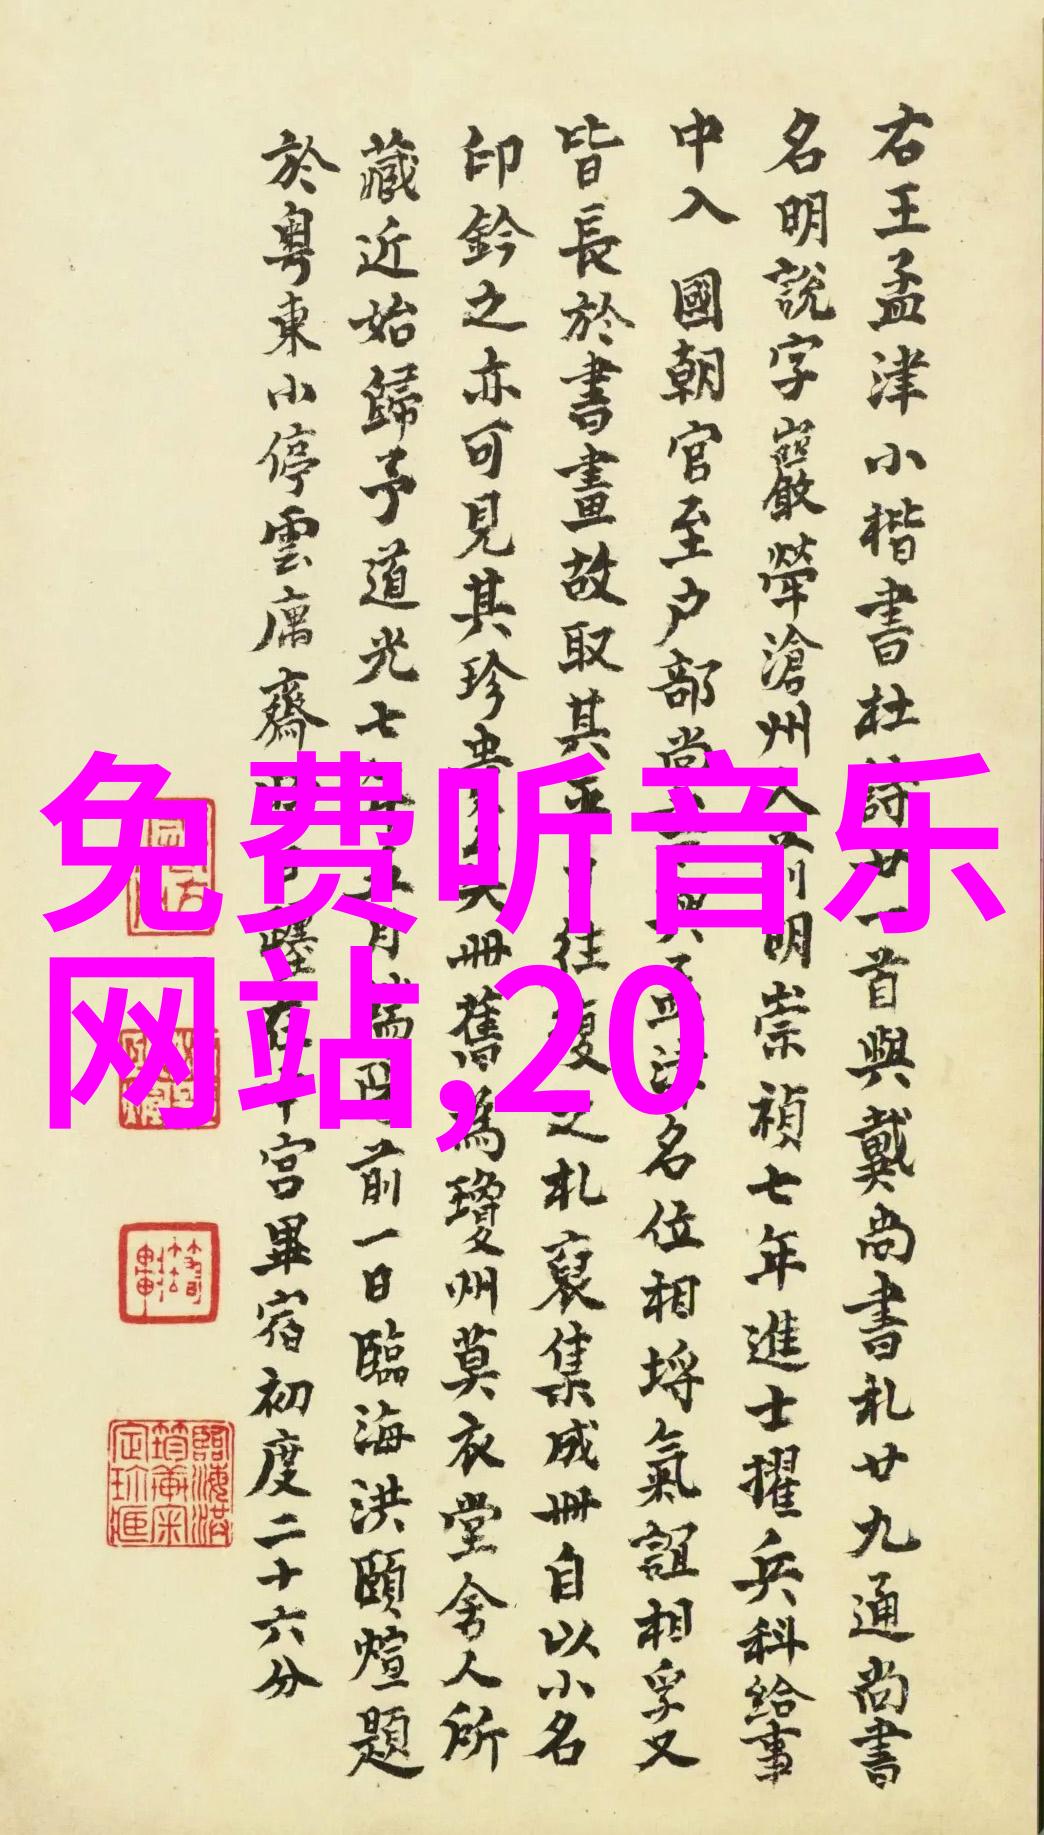 右王孟津小楷書杜詩廿一首與戴尚書札廿九通尚書
名明說字巖犖滄州人前明崇禎七年進士擢兵科給事
中入 國朝官至户部尚書與孟津名位相埒氣誼相孚又
皆長於書畫故取其平日往復之札裒集成冊自以小名
印鈐之亦可見其珍貴矣冊舊為瓊州莫衣堂舍人所
藏近始歸予道光七年五月端陽前一日臨海洪頤煊題
於粵東小停雲庽齋
宫畢宿初度二十六分
免费听音乐
网站,20